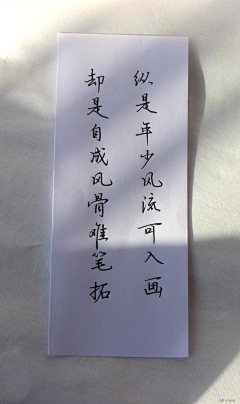 纵是年少风流可入画
却是自成风骨难笔拓